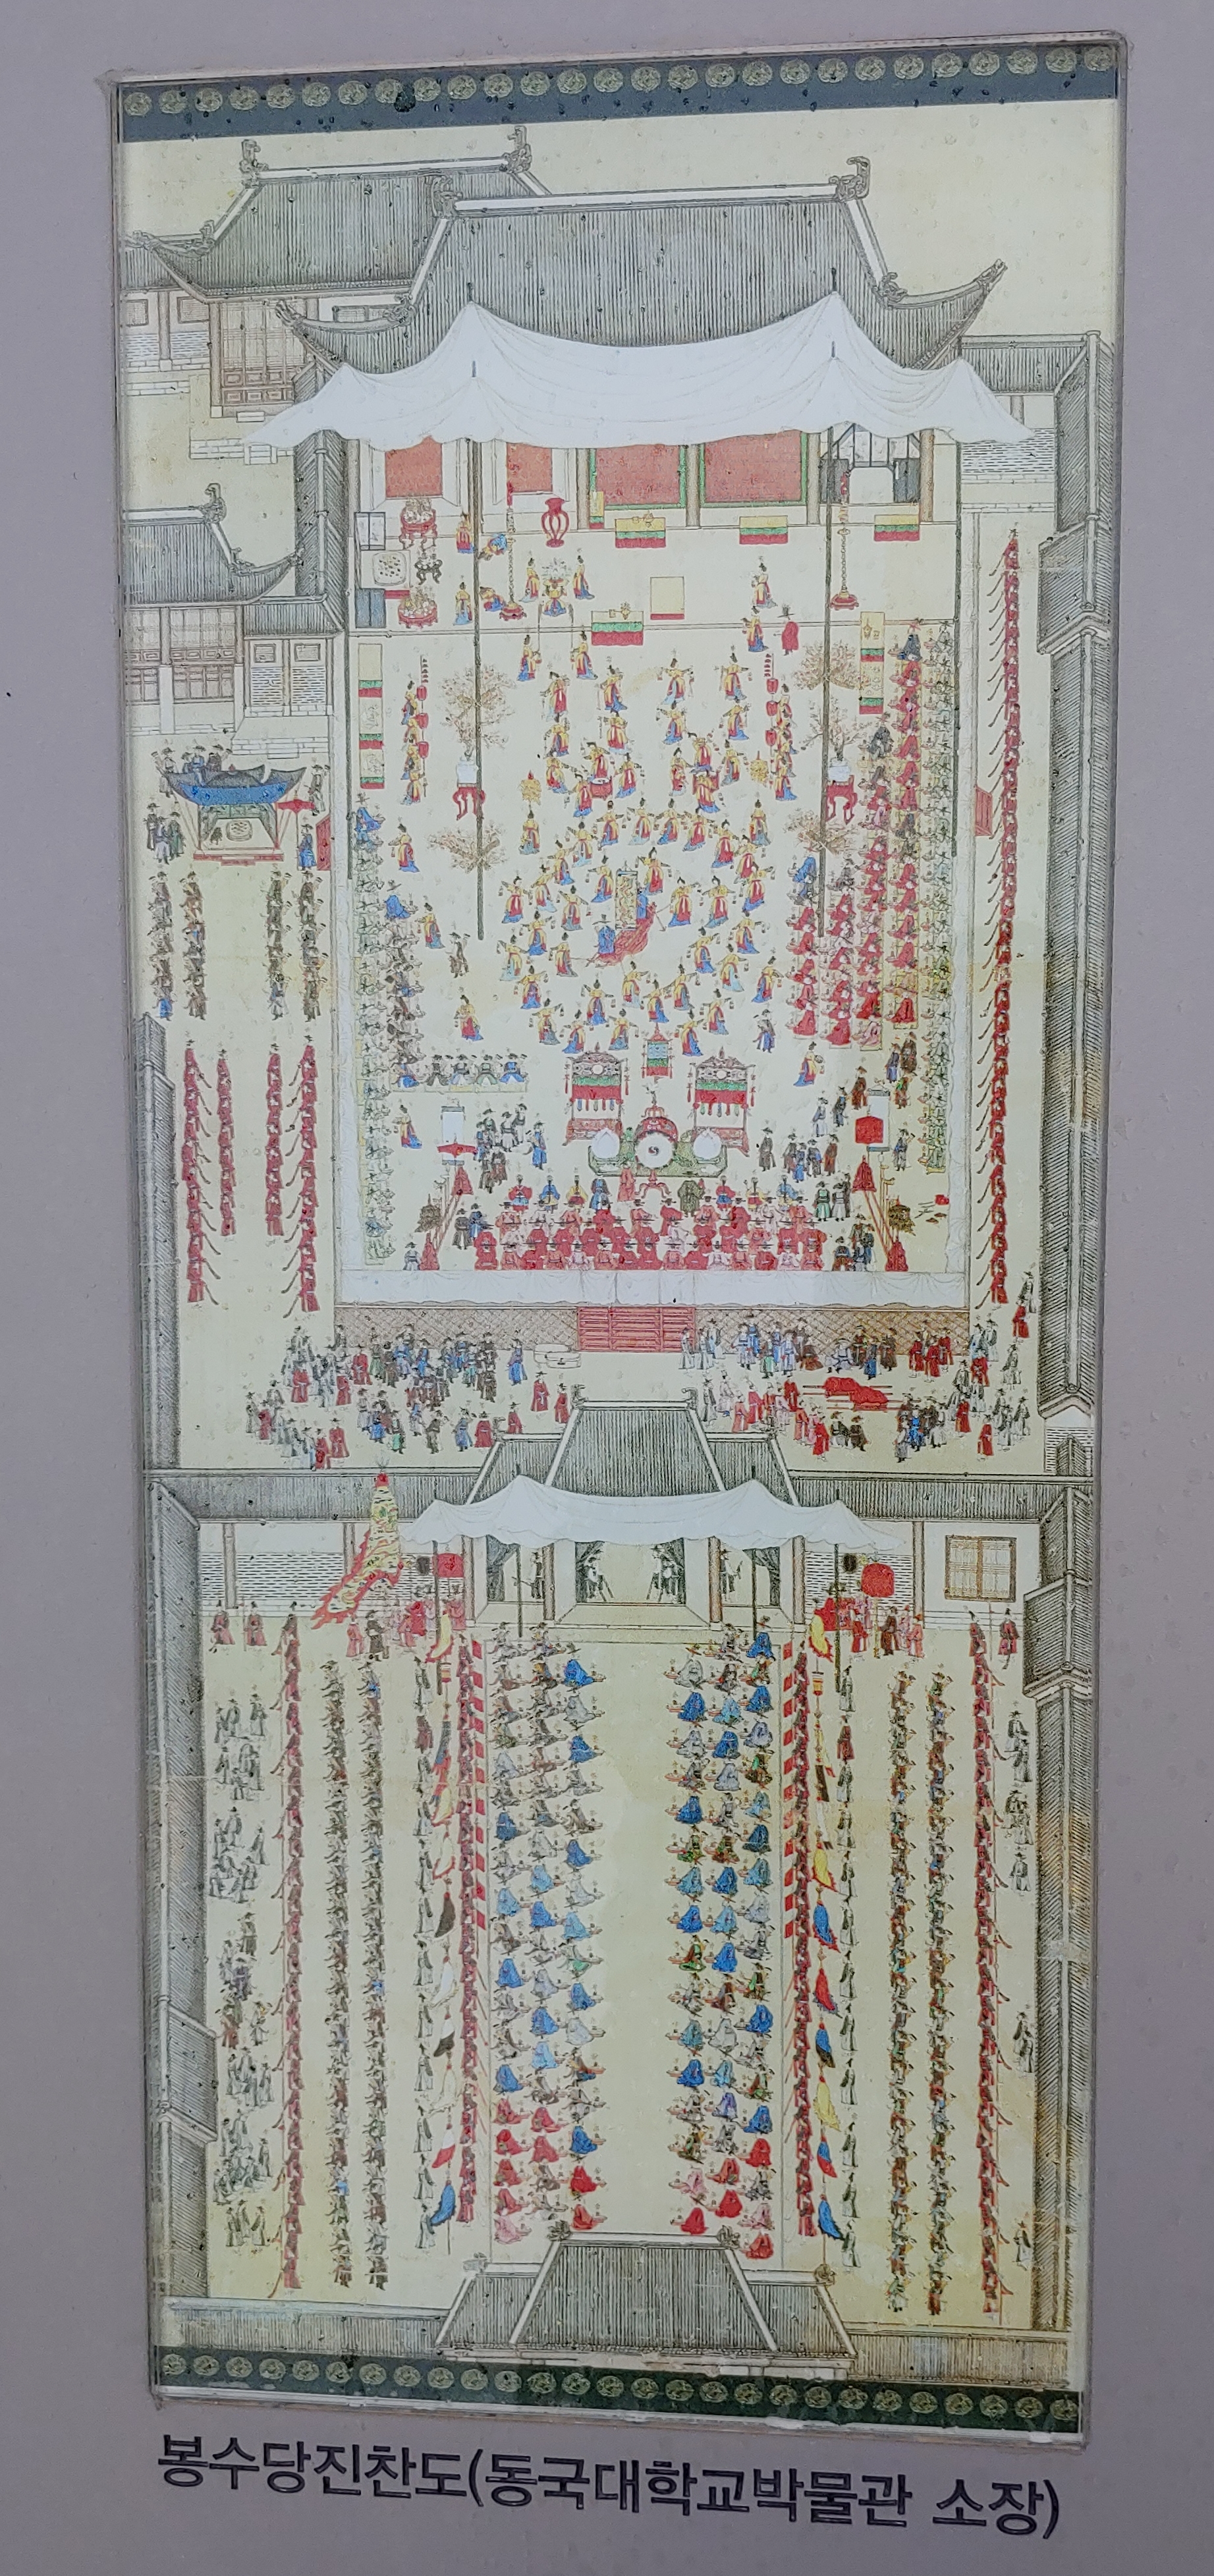 봉수당진찬도(동국대학교박물관 소장)